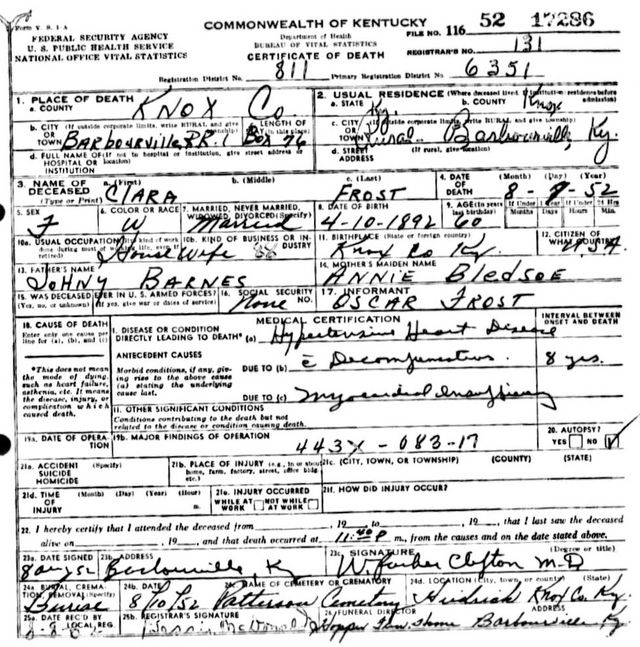 Form V. S. 1-A
COMMONWEALTH OF KENTUCKY
FILE NO. 116 52 17286
FEDERAL SECURITY AGENCY
U. S. PUBLIC HEALTH SERVICE
NATIONAL OFFICE VITAL STATISTICS
Department of Health
BUREAU OF VITAL STATISTICS
CERTIFICATE OF DEATH
REGISTRAR'S NO. 131
Registration District No. 811 Primary Registration District No. 6351
1. PLACE OF DEATH
a. COUNTY KNOX Co
2. USUAL RESIDENCE (Where deceased lived. If institution: residence before admission)
a. STATE Ky b. COUNTY Knox
b. CITY (If outside corporate limits, write RURAL and give township) OR TOWN Barbourville, RR. 1 Box 76
c. LENGTH OF STAY (in this place)
c. CITY (If outside corporate limits, write RURAL and give township) OR TOWN Rural Barbourville, Ky.
d. FULL NAME OF (If not in hospital or institution, give street address or location) HOSPITAL OR INSTITUTION
d. STREET ADDRESS (If rural, give location)
3. NAME OF DECEASED (Type or Print) a. (First) CLARA b. (Middle) c. (Last) FROST
4. DATE OF DEATH (Month) (Day) (Year) 8-8-52
5. SEX F
6. COLOR OR RACE W
7. MARRIED, NEVER MARRIED, WIDOWED, DIVORCED (Specify) Married
8. DATE OF BIRTH 4-10-1892
9. AGE (In years last birthday) 60 If Under 1 Year Months Days If Under 24 Hrs. Hours Min.
10a. USUAL OCCUPATION (Give kind of work done during most of working life, even if retired) House Wife
10b. KIND OF BUSINESS OR INDUSTRY
11. BIRTHPLACE (State or foreign country) Knox Co Ky.
12. CITIZEN OF WHAT COUNTRY? USA
13. FATHER'S NAME JOHNY BARNES
14. MOTHER'S MAIDEN NAME ANNIE BLEDSOE
15. WAS DECEASED EVER IN U. S. ARMED FORCES? (Yes, no, or unknown) (If yes, give war or dates of service)
16. SOCIAL SECURITY NO. None
17. INFORMANT OSCAR FROST
18. CAUSE OF DEATH
Enter only one cause per line for (a), (b), and (c)
MEDICAL CERTIFICATION
INTERVAL BETWEEN ONSET AND DEATH
1. DISEASE OR CONDITION DIRECTLY LEADING TO DEATH* (a) Hypertensive Heart Disease
ANTECEDENT CAUSES
DUE TO (b) c̄ Decompensation 8 yrs.
*This does not mean the mode of dying, such as heart failure, asthenia, etc. It means the disease, injury, or complication which caused death.
Morbid conditions, if any, giving rise to the above cause (a) stating the underlying cause last.
DUE TO (c) Myocardial Insufficiency
11. OTHER SIGNIFICANT CONDITIONS
Conditions contributing to the death but not related to the disease or condition causing death.
19a. DATE OF OPERATION
19b. MAJOR FINDINGS OF OPERATION
443X - 083-17
20. AUTOPSY? YES NO
21a. ACCIDENT SUICIDE HOMICIDE (Specify)
21b. PLACE OF INJURY (e.g., in or about home, farm, factory, street, office bldg., etc.)
21c. (CITY, TOWN, OR TOWNSHIP) (COUNTY) (STATE)
21d. TIME OF INJURY (Month) (Day) (Year) (Hour) m.
21e. INJURY OCCURRED WHILE AT WORK NOT WHILE AT WORK
21f. HOW DID INJURY OCCUR?
22. I hereby certify that I attended the deceased from , 19 to , 19 , that I last saw the deceased
alive on , 19 , and that death occurred at 11:40P m., from the causes and on the date stated above.
23a. DATE SIGNED 8 aug 52
23b. ADDRESS Barbourville, Ky
23c. SIGNATURE (Degree or title) Clifton M-D
24a. BURIAL, CREMATION, REMOVAL (Specify) Burial
24b. DATE 8/10/52
24c. NAME OF CEMETERY OR CREMATORY Patterson Cemetery
24d. LOCATION (City, town, or county) (State) Knox Co. Ky.
25a. DATE REC'D BY LOCAL REG.
25b. REGISTRAR'S SIGNATURE
26. FUNERAL DIRECTOR ADDRESS
Hopper Fun. Home Barbourville Ky